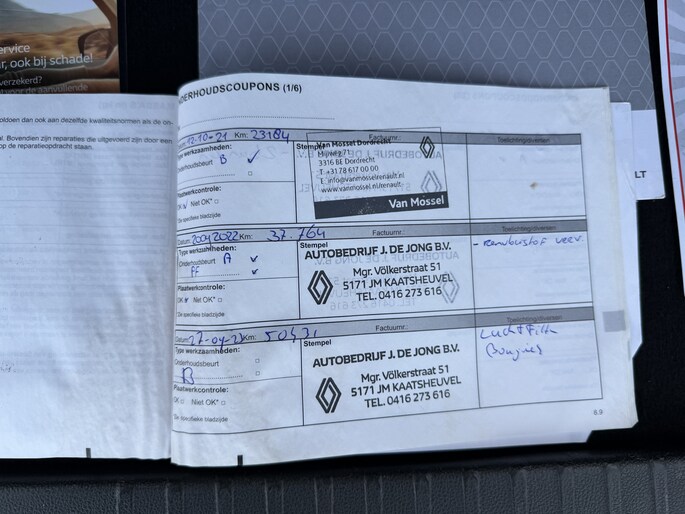 ervice
r, ook bij schade!
verzekerd?
voor de aanvullende
oldoen dan ook aan dezelfde kwaliteitsnormen als de on-
al. Bovendien zijn reparaties die uitgevoerd zijn door
op de reparatieopdracht staan.
NDERHOUDSCOUPONS (1/6)
Datum: 12-10-21 Km: 23184 Factuurnr.: Toelichting/diversen
Type werkzaamheden:
Onderhoudsbeurt B ✓
Plaatwerkcontrole:
OK Niet OK*
*Zie specifieke bladzijde
Stempel
Van Mossel Dordrecht
Mijlweg 71
3316 BE Dordrecht
T. +31 78 617 00 00
E. info@vanmosselrenault.nl
www.vanmossel.nl/renault
Van Mossel
Datum: 20042022 Km: 37.764 Factuurnr.: Toelichting/diversen
Type werkzaamheden:
Onderhoudsbeurt A ✓
FF ✓
Plaatwerkcontrole:
OK Niet OK*
*Zie specifieke bladzijde
Stempel
AUTOBEDRIJF J. DE JONG B.V.
Mgr. Völkerstraat 51
5171 JM KAATSHEUVEL
TEL. 0416 273 616
- remvloeistof verv.
Datum: 27-04-23 Km: 50431 Factuurnr.: Toelichting/diversen
Type werkzaamheden:
Onderhoudsbeurt
B
Plaatwerkcontrole:
OK Niet OK*
*Zie specifieke bladzijde
Stempel
AUTOBEDRIJF J. DE JONG B.V.
Mgr. Völkerstraat 51
5171 JM KAATSHEUVEL
TEL. 0416 273 616
Luchtfilter
Bougies
8.9
LT